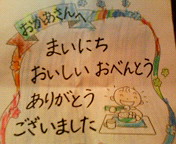 おかあさんへ
まいにち
おいしい おべんとう
ありがとう
ございました